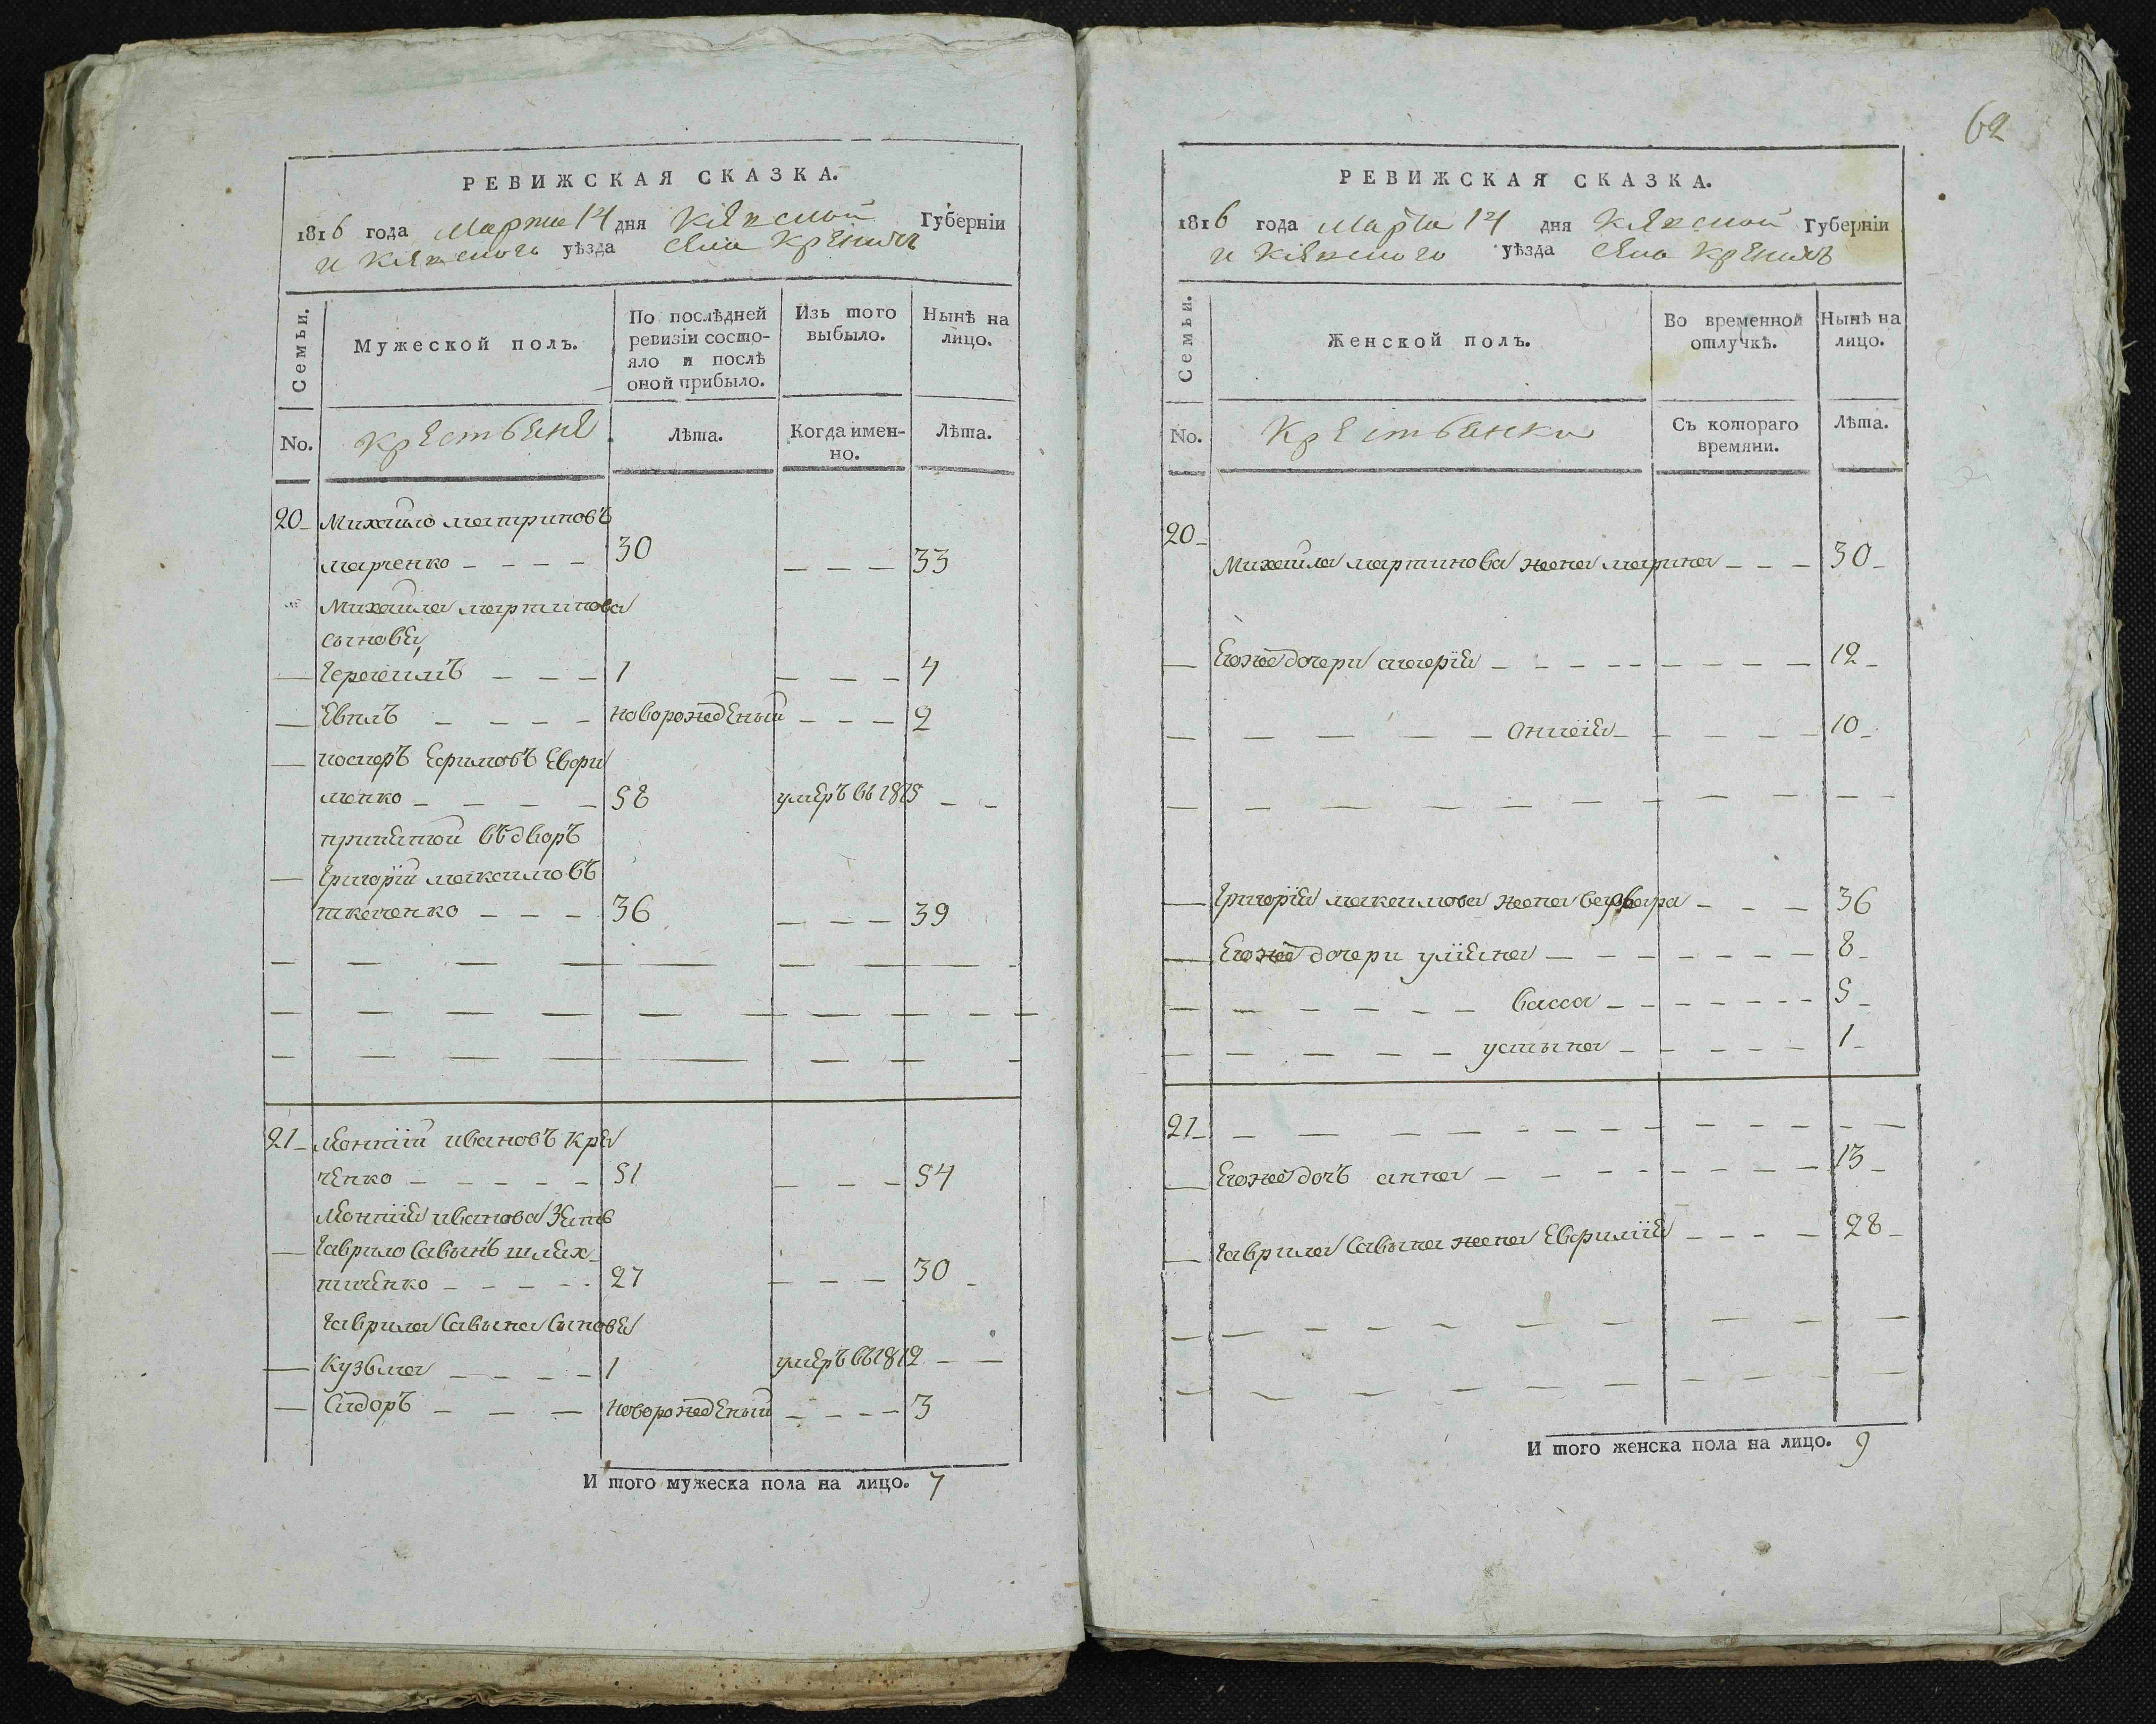 РЕВИЖСКАЯ СКАЗКА.
1816 года Марта 14 дня Кіевской Губерніи
и Кіевского уѣзда села
Семьи.
Мужеской полъ.
По послѣдней ревизіи состо-
яло и послѣ
оной прибыло.
Изъ того
выбыло.
Нынѣ на
лицо.
No.
Крестьяне
Лѣта.
Когда имен-
но.
Лѣта.
20 Михайло мартиновъ
марченко 30 33
Михайла мартинова
сыновья
Герасимъ 1 4
Евплъ новорожденый 2
Ефимовъ Евфи
менко 58 умеръ въ 1815
принятой въ дворъ
Григорій максимовъ
ткаченко 36 39
21 Леонтій ивановъ Кра
ченко 51 54
Леонтія иванова Зять
Гаврило Савынъ шлях
тиченко 27 30
Гаврила Савына Сыновья
Кузьма 1 умеръ въ 1812
Сидоръ новорожденый 3
И того мужеска пола на лицо. 7
62
РЕВИЖСКАЯ СКАЗКА.
1816 года Марта 14 дня Кіевской Губерніи
и Кіевского уѣзда села
Семьи.
Женской полъ.
Во временной
отлучкѣ.
Нынѣ на
лицо.
No.
Крестьянки
Съ котораго
времяни.
Лѣта.
20
Михайла мартинова жена марина 30
Егоже дочери марія 12
10
Григорія максимова жена варвара 36
Егоже дочери уліяна 8
васса 5
устына 1
21
Егоже дочь анна 13
Гаврила Савына жена Евфимія 28
И того женска пола на лицо. 9